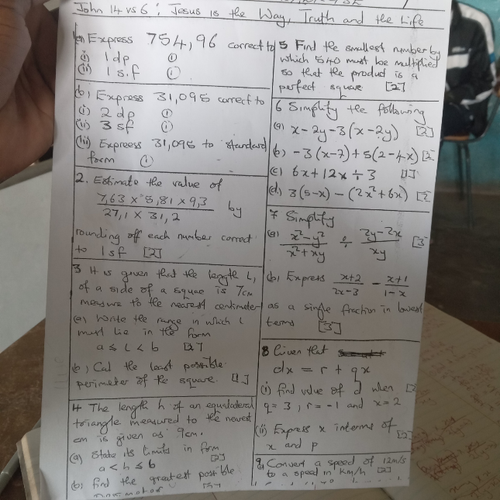 John 14 vs 6: Jesus is the Way, Truth and the Life
1(a) Express 754,96 correct to
(i) 1 dp (1)
(ii) 1 s.f (1)
(b) Express 31,095 correct to
(i) 2 dp (1)
(ii) 3 sf (1)
(iii) Express 31,095 to standard
form (1)
2. Estimate the value of
7,63 × 5,81 × 9,3
27,11 × 31,2
by
rounding off each number correct
to 1 sf [2]
3 It is given that the length L,
of a side of a square is 7cm
measure to the nearest centimeter
(a) Write the range in which l
must lie in the form
a ≤ L < b [2]
(b) Cal the least possible
perimeter of the square. [1]
4 The length h of an equilateral
triangle measured to the nearest
cm is given as 9cm,
(a) State its limits in form
a < h ≤ b [2]
(b) find the greatest possible
5 Find the smallest number by
which 540 must be multiplied
so that the product is a
perfect square [2]
6 Simplify the following
(a) x - 2y - 3(x - 2y) [2]
(b) -3(x - 7) + 5(2 - 4x) [2
(c) 6x + 12x ÷ 3 [1]
(d) 3(5 - x) - (2x² + 6x) [2
7 Simplify
(a) x² - y² ÷ 3y - 3x [3
x² + xy xy
(b) Express x+2 - x+1
2x-3 1-x
as a single fraction in lowest
terms [3]
8 Given that
dx = r + qx
(i) find value of d when
q = 3, r = -1 and x = 2
(ii) Express x interms of
x and p
9. Convert a speed of 12m/s
to a speed in km/h [2]